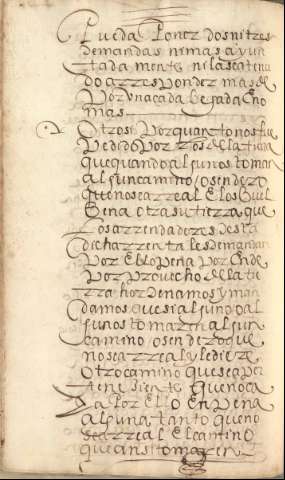 Pueda Poner dos ni tres
demandas ni mas ayun
tada mente ni las ca tenu
do a rresponder mas de
Por una cada begada E no
mas
Otrosi Por quanto nos fue
Pedido Por de la tierra
que quando algunos toman
algun camino / o sendero
que no sea rreal E los buel
ben a otra su tierra que
los arrendadores desta
dicha rrenta les demandan
Por Ello pena Por Ende
Por Provecho de la tie
rra hordenamos y man
damos que si alguno / o al
gunos tomaren algun
camino / o sendero que
no sea rreal y le diere
otro camino que sea per
teneciente que no ca
ya Por Ello En pena
alguna tanto que no
sea rreal El camino
que ansi tomaren